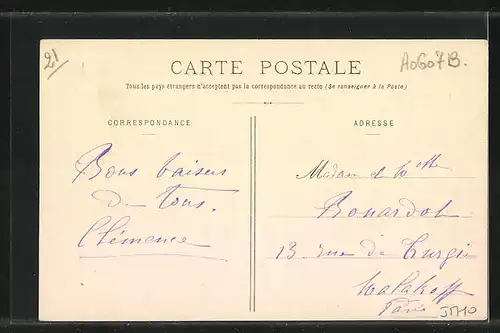 21
A0607B.
CARTE POSTALE
Tous les pays étrangers n'acceptent pas la correspondance au recto (Se renseigner à la Poste)
CORRESPONDANCE
ADRESSE
Bons baisers
de Tous.
Clémence
Madam et
Bonardot
13 rue de
Malakoff
Paris